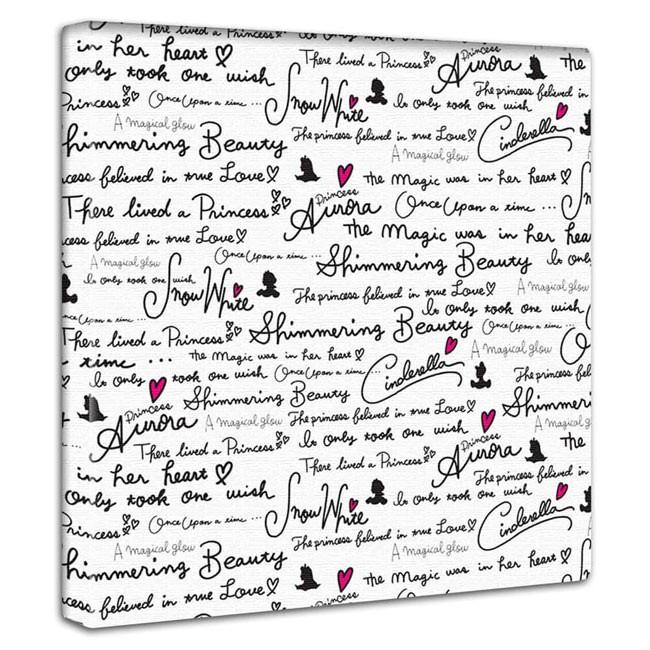 There lived a Princess
in her heart
There lived a Princess
Princess
Aurora
the
only took one wish
The princess believed in
Princess
Once Upon a time ...
Snow White
Is only took one wish
A magical glow
The princess believed in true Love
Cinderella
Shimmering Beauty
A magical glow
cess believed in true Love
the Magic was in her heart
There lived a Princess
Princess
Aurora
Once Upon a time ...
the Magic was in her hea
cess believed in true Love
Once Upon a time ...
Shimmering Beauty
A magical glow
Is only took one wish
Snow White
The princess believed in true Love
A magical glow
Is only took one wish
Once Upon a time ...
There lived a Princess
Shimmering Beauty
Once Upon a time ...
time ...
the Magic was in her heart
A magical glow
Is only took one wish
Once Upon a time ...
Cinderella
The princess bel
Princess
Aurora
Shimmering Beauty
Shimmeri
A magical glow
The princess believed in true Love
A magical g
There lived a Princess
Is only took one wish
Princess
Aurora
the
in her heart
There lived a Princess
The princess believed in
only took one wish
Snow White
Is only took one wish
Princess
Once Upon a time ...
Cinderella
A magical glow
The princess believed in true Love
Shimmering Beauty
A magical glow
cess believed in true Love
the Magic was in her heart
Princess